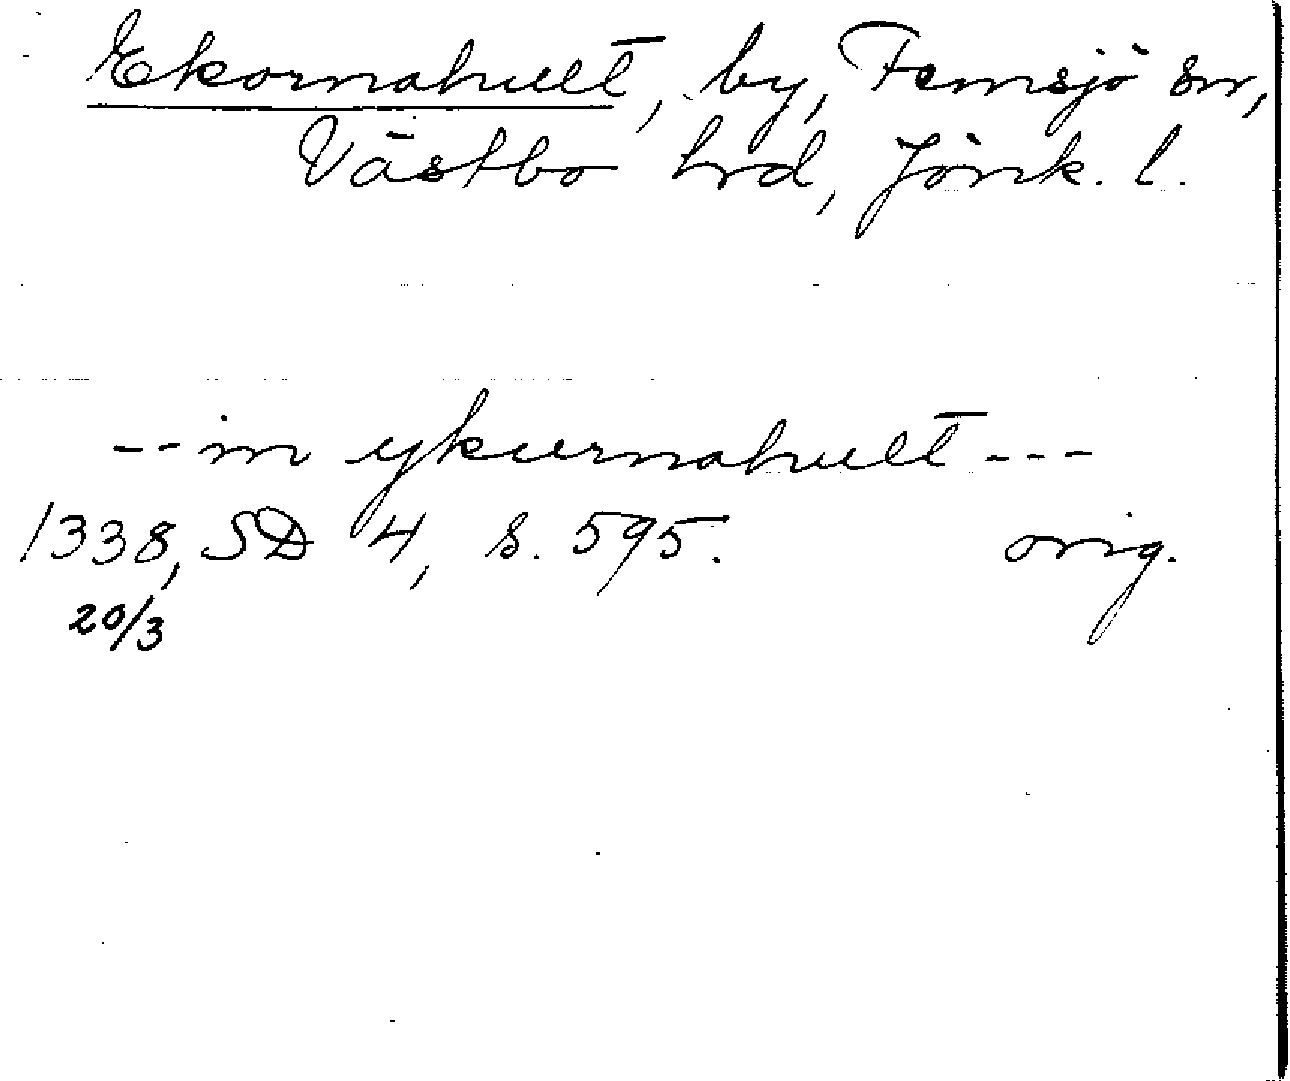 Ekornahult, by, Femsjö sn,
Västbo hrd, Jönk. l.
-- in ykurnahult ---
1338, SD 4, s. 595. orig.
20/3